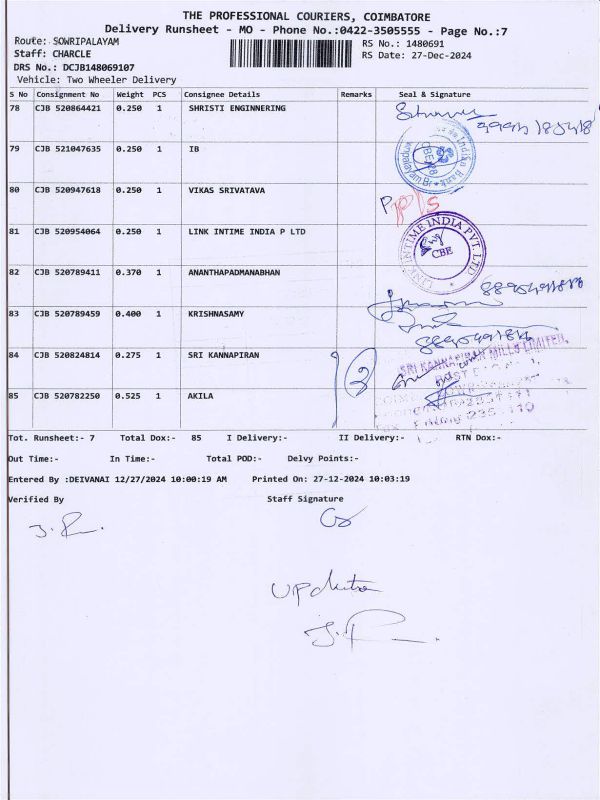 THE PROFESSIONAL COURIERS, COIMBATORE
Delivery Runsheet - MO - Phone No.:0422-3505555 - Page No.:7
Route: SOWRIPALAYAM
RS No.: 1480691
Staff: CHARCLE
RS Date: 27-Dec-2024
DRS No.: DCJB148069107
Vehicle: Two Wheeler Delivery
S No Consignment No Weight PCS Consignee Details Remarks Seal & Signature
78 CJB 520864421 0.250 1 SHRISTI ENGINNERING
79 CJB 521047635 0.250 1 IB
80 CJB 520947618 0.250 1 VIKAS SRIVATAVA
81 CJB 520954064 0.250 1 LINK INTIME INDIA P LTD
LINK INTIME INDIA PVT. LTD
CBE
82 CJB 520789411 0.370 1 ANANTHAPADMANABHAN
83 CJB 520789459 0.400 1 KRISHNASAMY
84 CJB 520824814 0.275 1 SRI KANNAPIRAN
SRI KANNAPIRAN MILLS LIMITED,
85 CJB 520782250 0.525 1 AKILA
Tot. Runsheet:- 7 Total Dox:- 85 I Delivery:- II Delivery:- RTN Dox:-
Out Time:- In Time:- Total POD:- Delvy Points:-
Entered By :DEIVANAI 12/27/2024 10:00:19 AM Printed On: 27-12-2024 10:03:19
Verified By Staff Signature